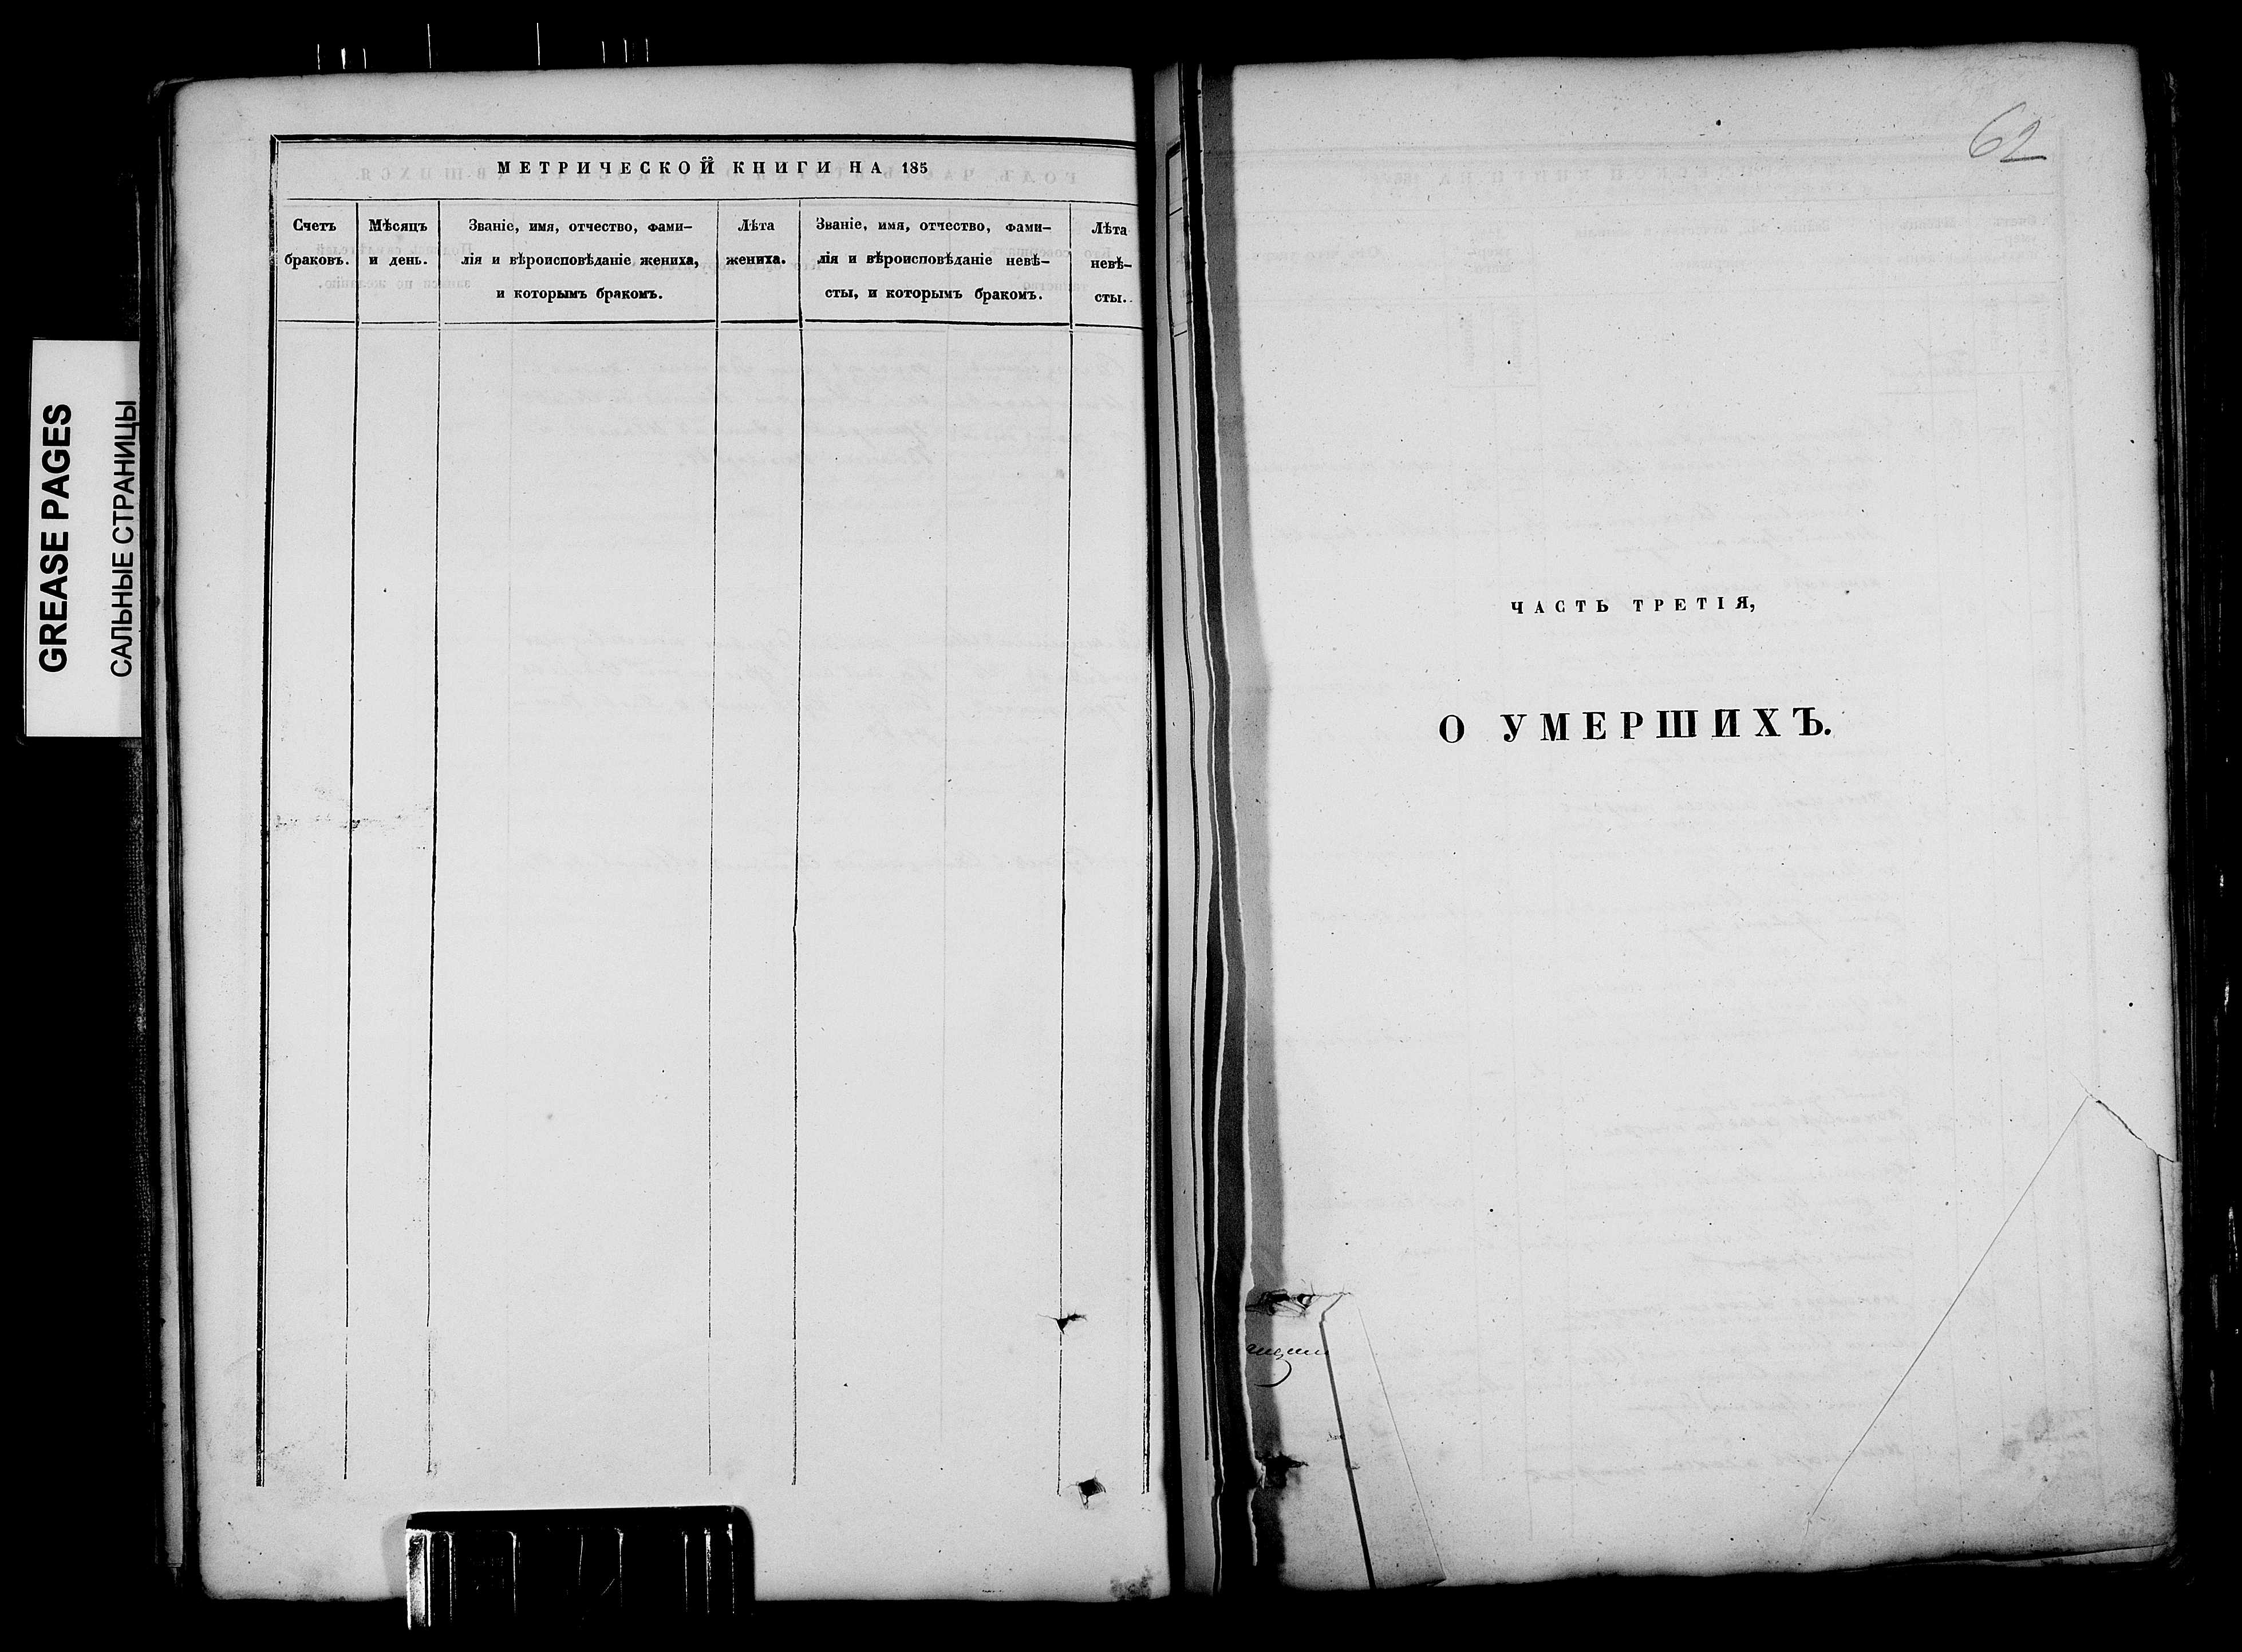 GREASE PAGES
САЛЬНЫЕ СТРАНИЦЫ
МЕТРИЧЕСКОЙ КНИГИ НА 185
Счетъ
браковъ.
Мѣсяцъ
и день.
Званіе, имя, отчество, фами-
лія и вѣроисповѣданіе жениха,
и которымъ бракомъ.
Лѣта
жениха.
Званіе, имя, отчество, фами-
лія и вѣроисповѣданіе невѣ-
сты, и которымъ бракомъ.
Лѣта
невѣ-
сты.
62
ЧАСТЬ ТРЕТІЯ,
О УМЕРШИХЪ.